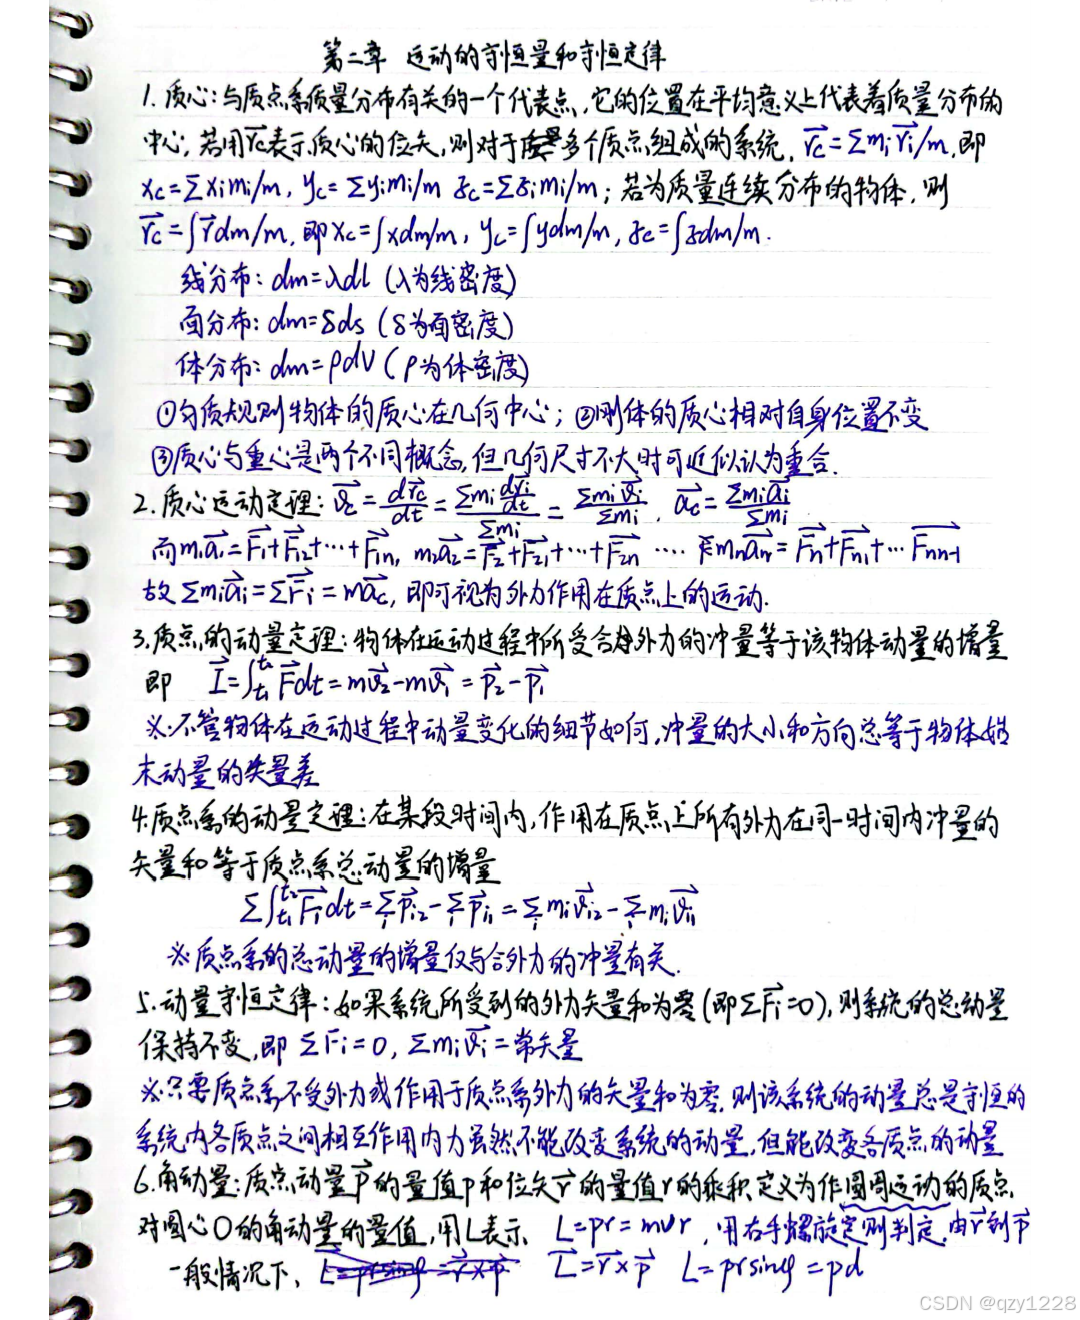 第二章 运动的守恒量和守恒定律
1. 质心:与质点系质量分布有关的一个代表点,它的位置在平均意义上代表着质量分布的
中心,若用r⃗c表示质心的位矢,则对于多个质点组成的系统, r⃗c=∑mir⃗i/m, 即
xc=∑ximi/m, yc=∑yimi/m zc=∑zimi/m; 若为质量连续分布的物体, 则
r⃗c=∫r⃗dm/m, 即xc=∫xdm/m, yc=∫ydm/m, zc=∫zdm/m.
线分布: dm=λdl (λ为线密度)
面分布: dm=δds (δ为面密度)
体分布: dm=ρdV (ρ为体密度)
①匀质规则物体的质心在几何中心; ②刚体的质心相对自身位置不变
③质心与重心是两个不同概念,但几何尺寸不大时可近似认为重合.
2. 质心运动定理: v⃗c = dr⃗c/dt = ∑mi dr⃗i/dt / ∑mi = ∑miv⃗i/∑mi, a⃗c = ∑mia⃗i/∑mi
而m1a⃗1=F⃗1+F⃗12+…+F⃗1n, m2a⃗2=F⃗2+F⃗21+…+F⃗2n …. mna⃗n=F⃗n+F⃗n1+…F⃗nn-1
故∑mia⃗i=∑F⃗i=ma⃗c, 即可视为外力作用在质点上的运动.
3.质点的动量定理:物体在运动过程中所受合外力的冲量等于该物体动量的增量
即 I⃗=∫t1t2F⃗dt=mv⃗2-mv⃗1=p⃗2-p⃗1
※:不管物体在运动过程中动量变化的细节如何,冲量的大小和方向总等于物体始
末动量的矢量差
4.质点系的动量定理:在某段时间内,作用在质点上所有外力在同一时间内冲量的
矢量和等于质点系总动量的增量
∑∫t1t2F⃗idt=∑ip⃗i2-∑ip⃗i1=∑imiv⃗i2-∑imiv⃗i1
※质点系的总动量的增量仅与合外力的冲量有关.
5.动量守恒定律:如果系统所受到的外力矢量和为零(即∑F⃗i=0),则系统的总动量
保持不变,即∑Fi=0, ∑miv⃗i=常矢量
※:只要质点系不受外力或作用于质点系外力的矢量和为零,则该系统的动量总是守恒的
系统内各质点之间相互作用内力虽然不能改变系统的动量,但能改变各质点的动量
6.角动量:质点动量p⃗的量值p和位矢r⃗的量值r的乘积定义为作圆周运动的质点
对圆心O的角动量的量值,用L表示 L=pr=mvr, 用右手螺旋定则判定,由r⃗到p⃗
一般情况下, L⃗=r⃗×p⃗ L=prsinφ=pd
CSDN @qzy1228